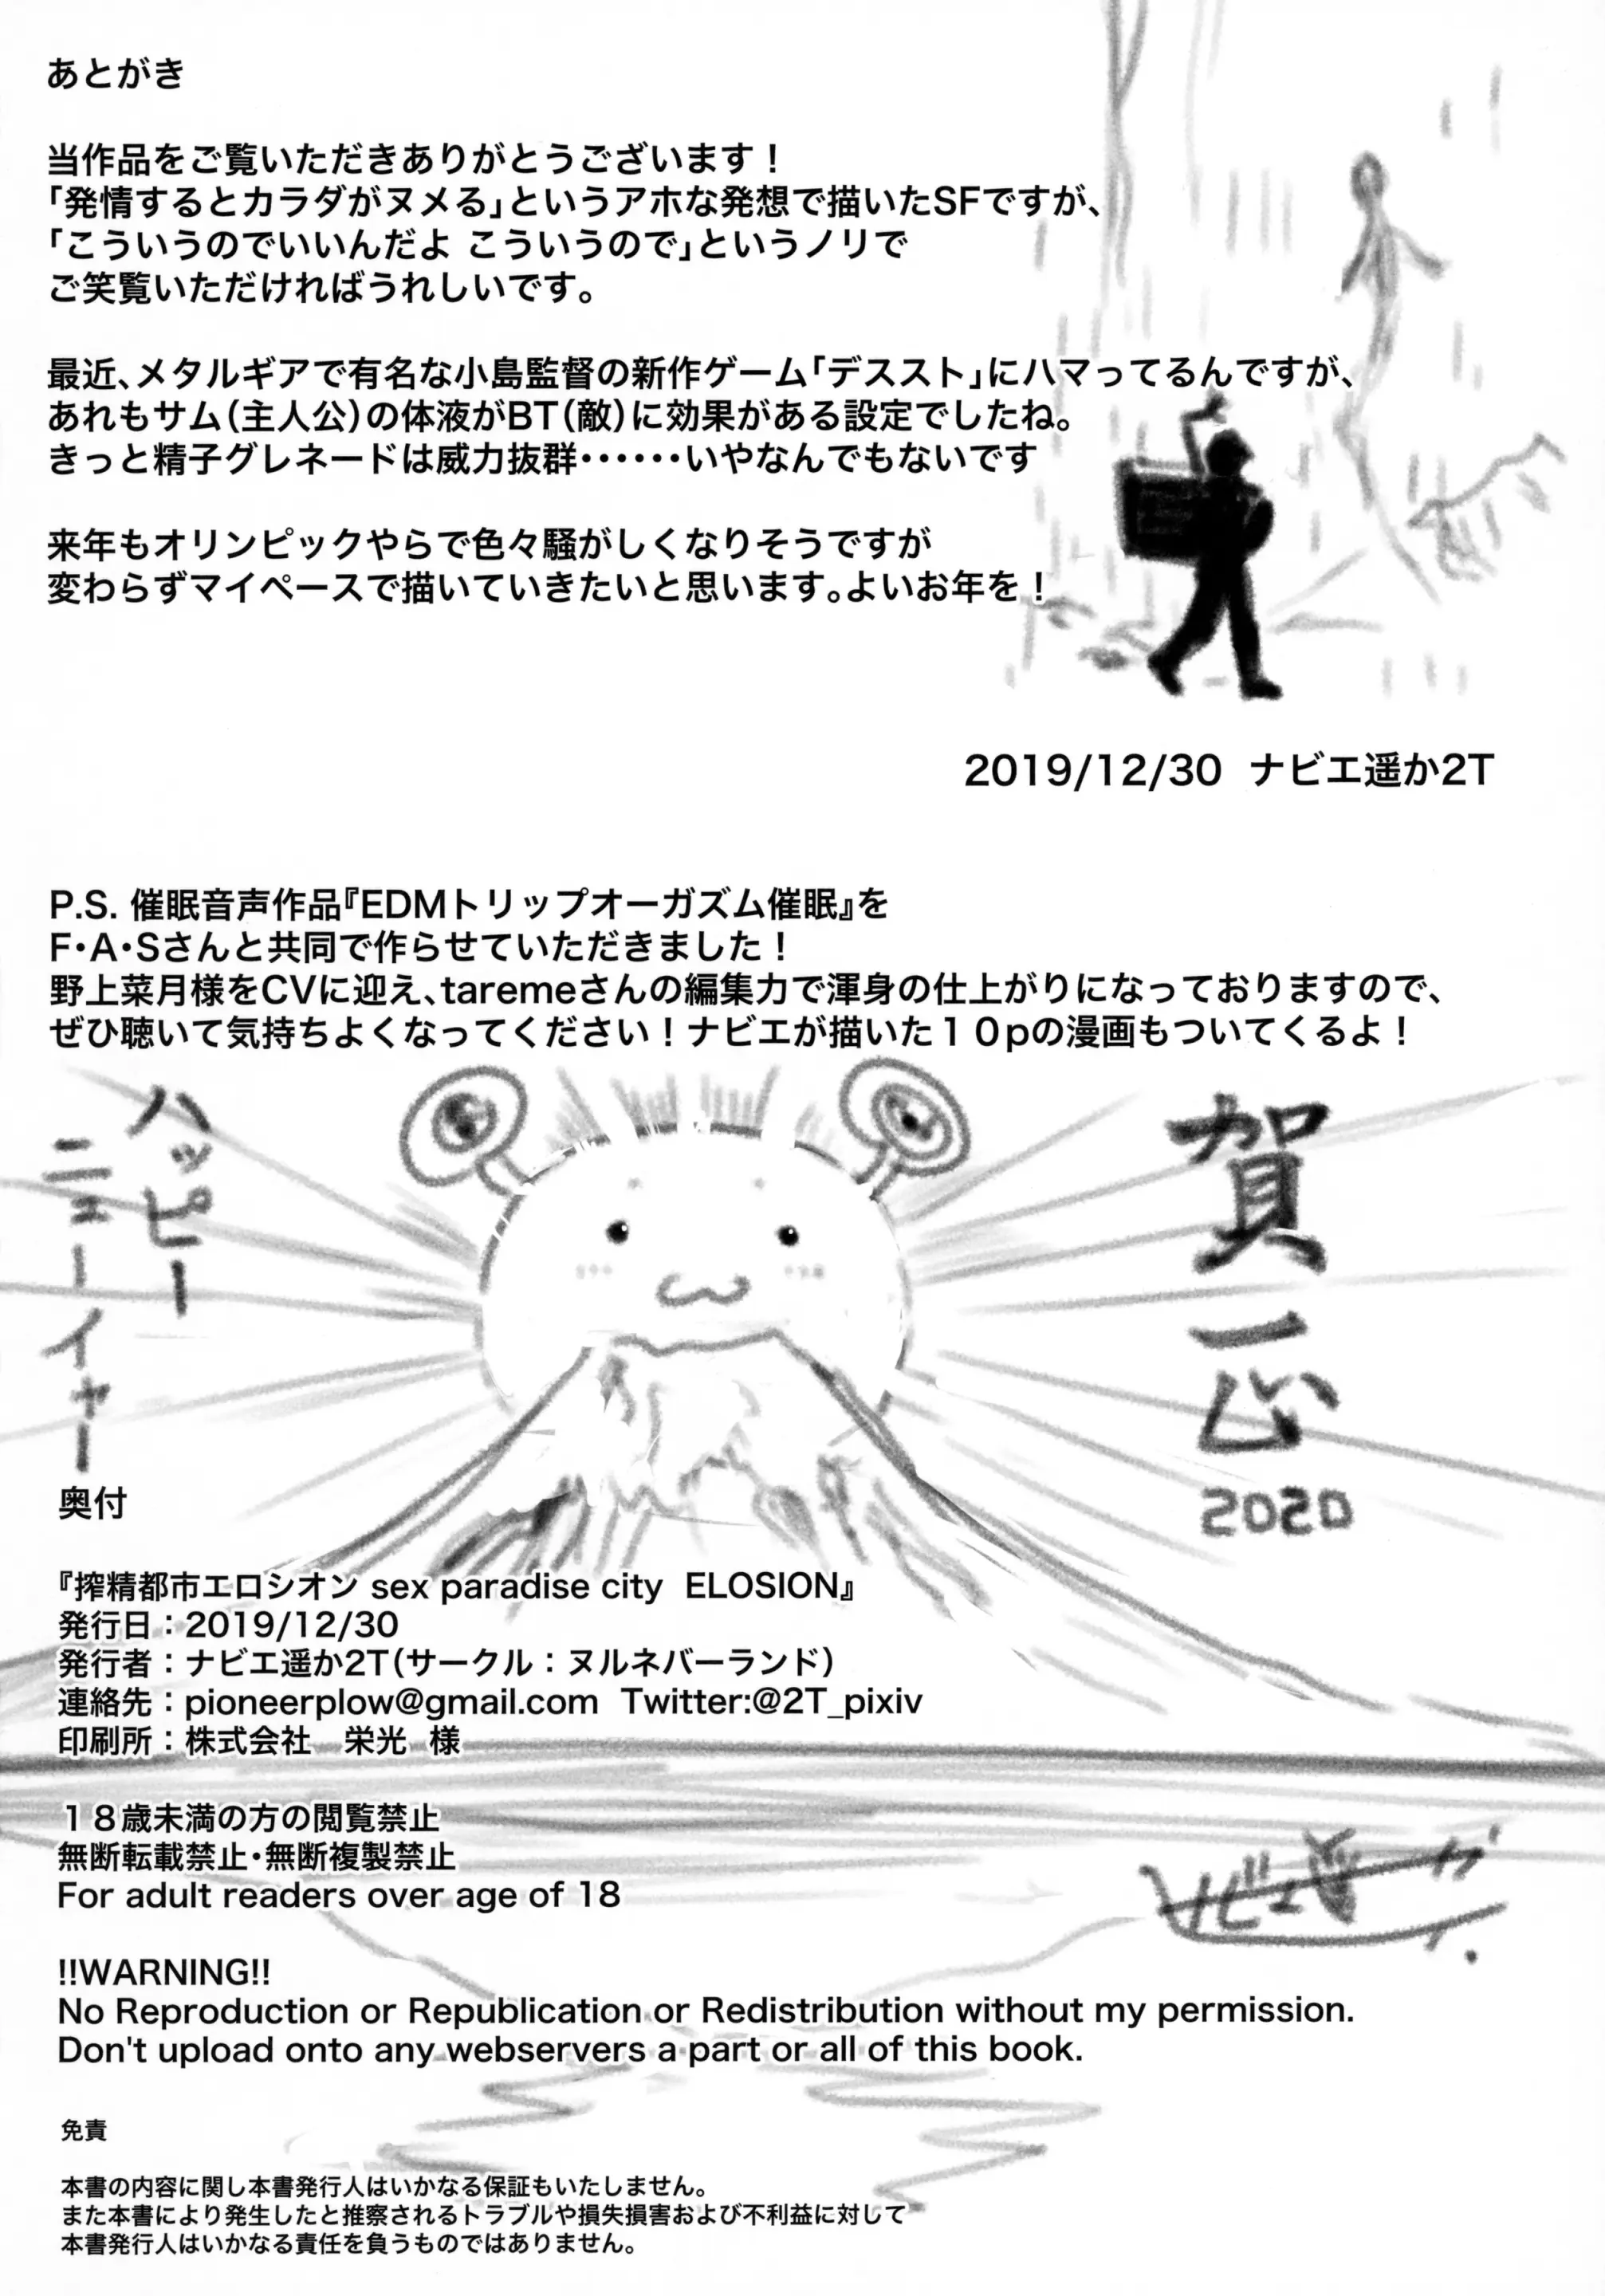 あとがき
当作品をご覧いただきありがとうございます！
「発情するとカラダがヌメる」というアホな発想で描いたSFですが、
「こういうのでいいんだよ こういうので」というノリで
ご笑覧いただければうれしいです。
最近、メタルギアで有名な小島監督の新作ゲーム「デススト」にハマってるんですが、
あれもサム（主人公）の体液がBT（敵）に効果がある設定でしたね。
きっと精子グレネードは威力抜群・・・・・・いやなんでもないです
来年もオリンピックやらで色々騒がしくなりそうですが
変わらずマイペースで描いていきたいと思います。よいお年を！
2019/12/30 ナビエ遥か2T
P.S. 催眠音声作品『EDMトリップオーガズム催眠』を
F・A・Sさんと共同で作らせていただきました！
野上菜月様をCVに迎え、taremeさんの編集力で渾身の仕上がりになっておりますので、
ぜひ聴いて気持ちよくなってください！ナビエが描いた１０pの漫画もついてくるよ！
賀正
2020
ハッピー
ニューイヤー
奥付
『搾精都市エロシオン sex paradise city ELOSION』
発行日：2019/12/30
発行者：ナビエ遥か2T（サークル：ヌルネバーランド）
連絡先：pioneerplow@gmail.com Twitter:@2T_pixiv
印刷所：株式会社 栄光 様
１８歳未満の方の閲覧禁止
無断転載禁止・無断複製禁止
For adult readers over age of 18
!!WARNING!!
No Reproduction or Republication or Redistribution without my permission.
Don't upload onto any webservers a part or all of this book.
免責
本書の内容に関し本書発行人はいかなる保証もいたしません。
また本書により発生したと推察されるトラブルや損失損害および不利益に対して
本書発行人はいかなる責任を負うものではありません。